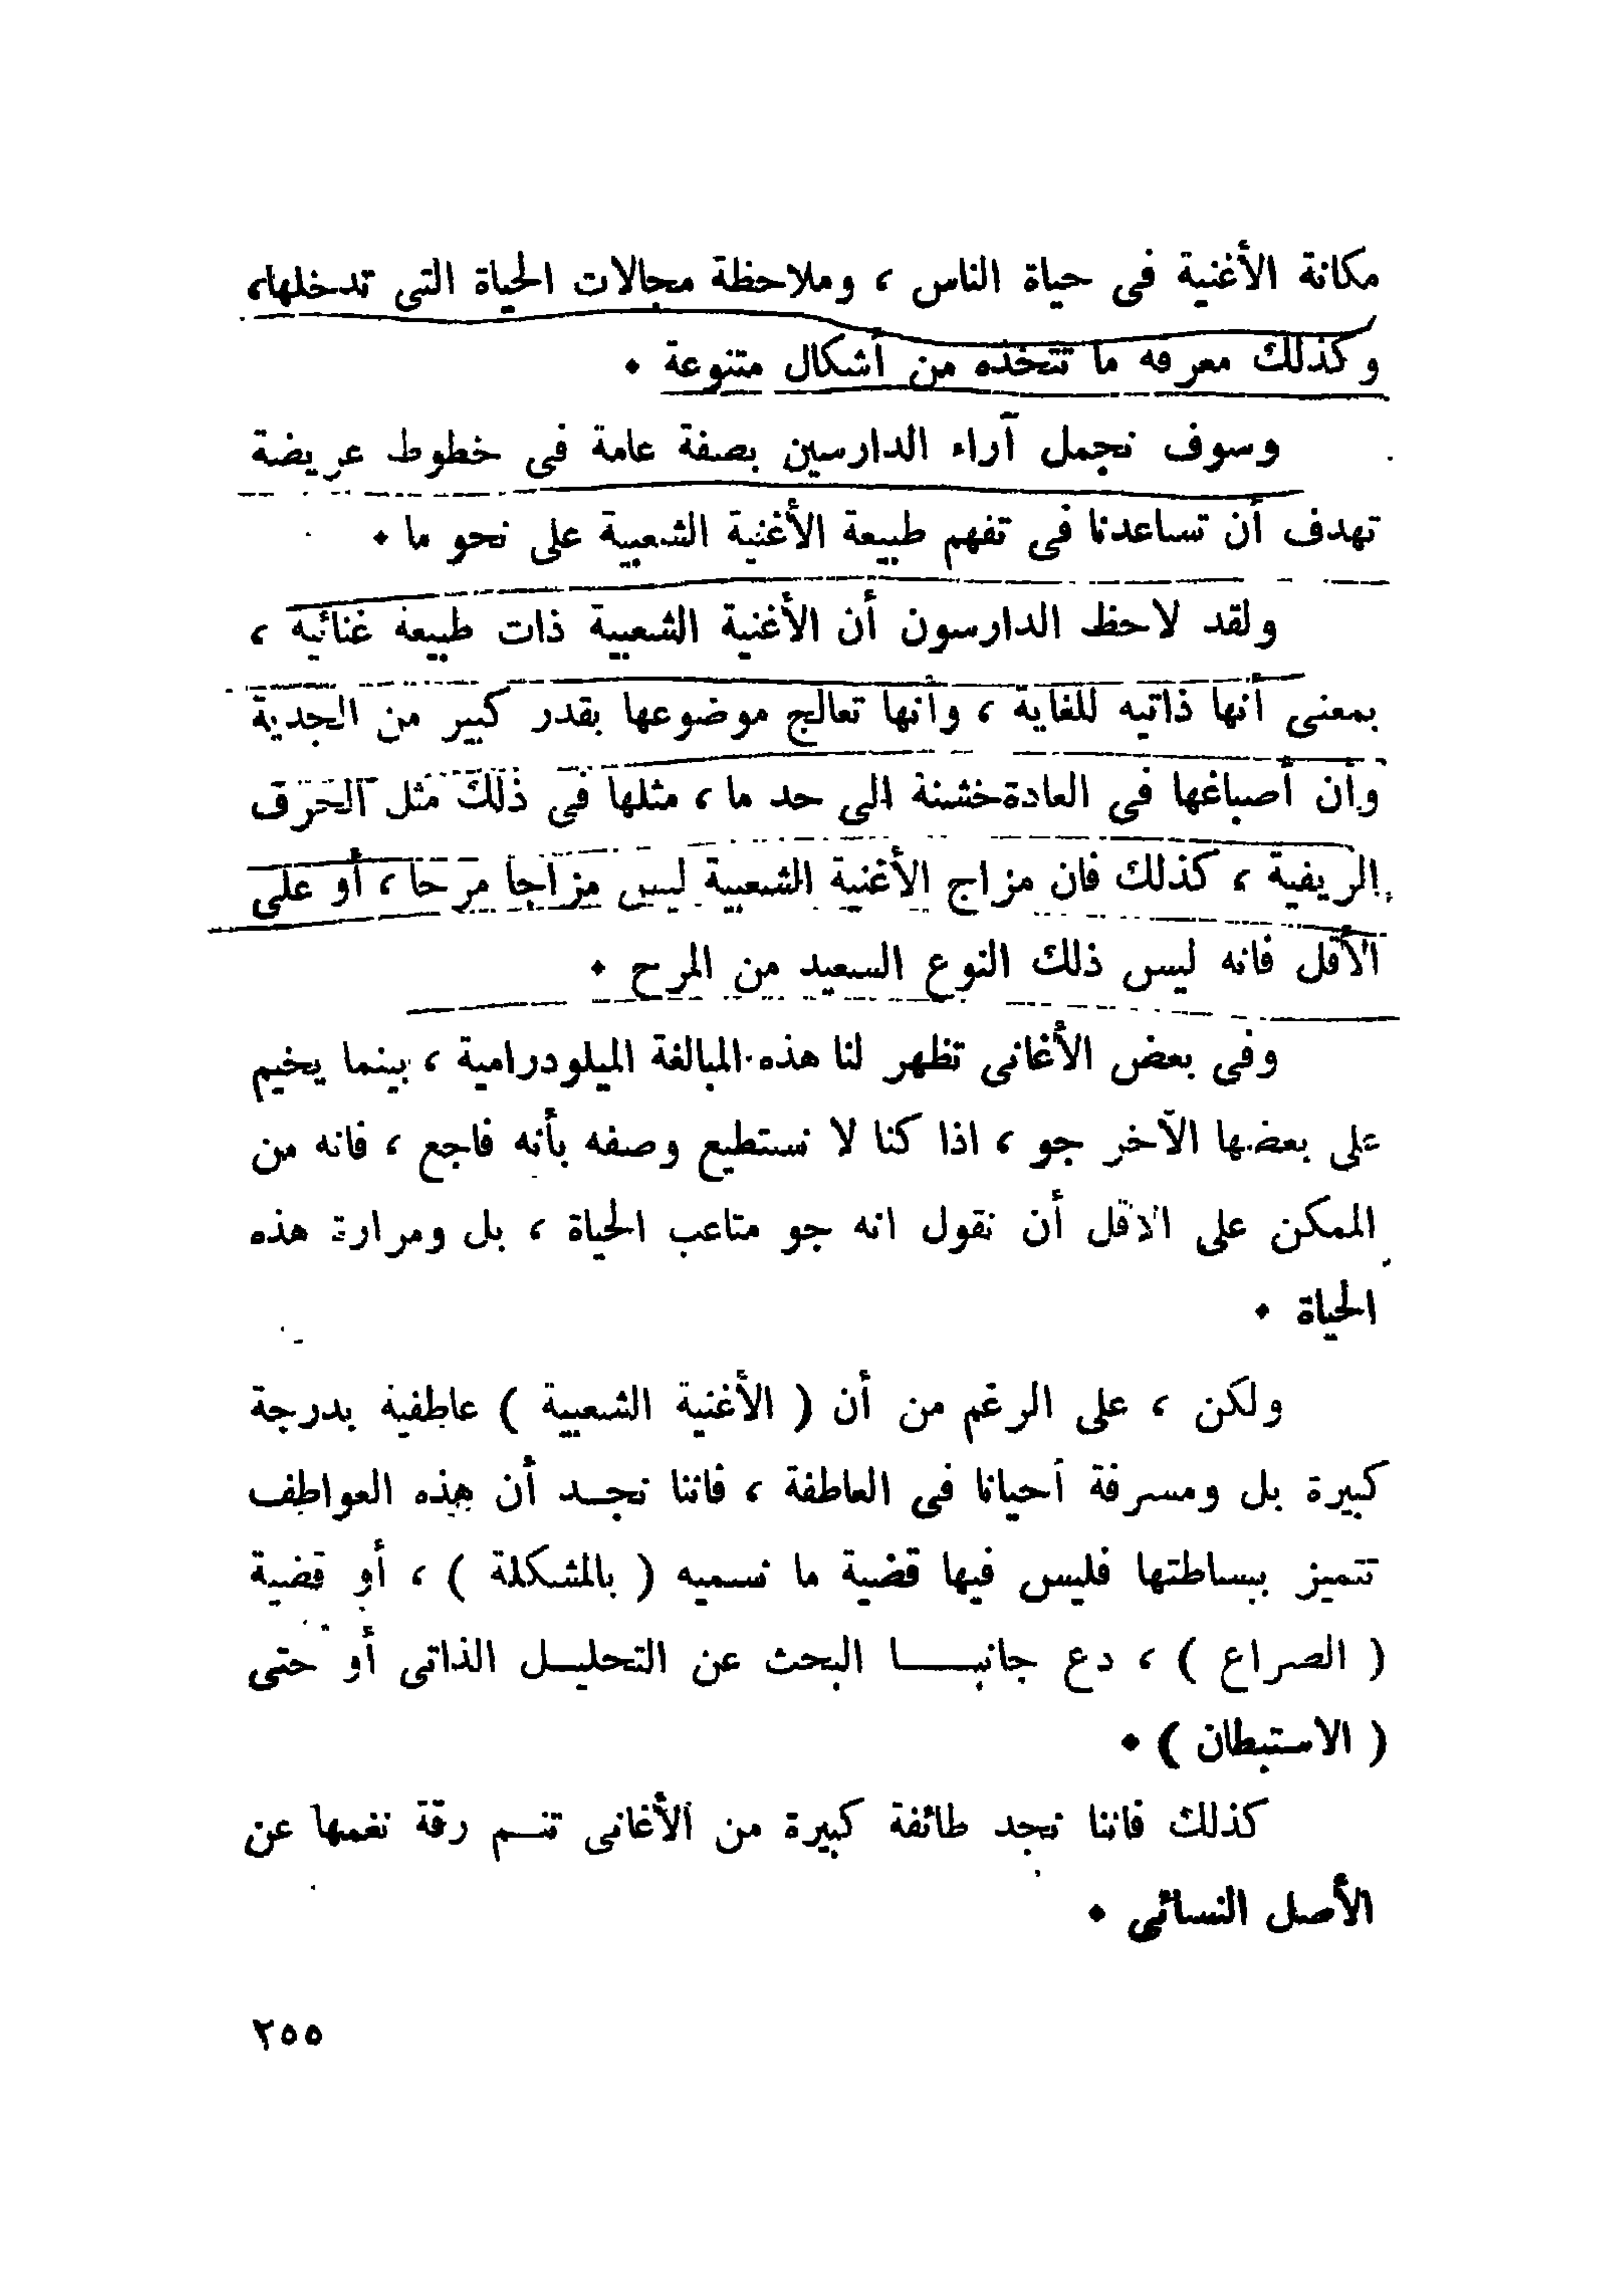 مكانة الأغنية فى حياة الناس ، وملاحظة مجالات الحياة التى تدخلها،
وكذلك معرفه ما تتخذه من أشكال متنوعة ٠
وسوف نجمل آراء الدارسين بصفة عامة فى خطوط عريضة
تهدف أن تساعدنا فى تفهم طبيعة الأغنية الشعبية على نحو ما ٠
ولقد لاحظ الدارسون أن الأغنية الشعبية ذات طبيعة غنائيه ،
بمعنى أنها ذاتيه للغاية ، وأنها تعالج موضوعها بقدر كبير من الجدية
وأن أصباغها فى العادة خشنة الى حد ما ، مثلها فى ذلك مثل الحرف
الريفية ، كذلك فان مزاج الأغنية الشعبية ليس مزاجا مرحا ، أو على
الأقل فانه ليس ذلك النوع السعيد من المرح ٠
وفى بعض الأغانى تظهر لنا هذه المبالغة الميلودرامية ، بينما يخيم
على بعضها الآخر جو ، اذا كنا لا نستطيع وصفه بأنه فاجع ، فانه من
الممكن على الاقل أن نقول انه جو متاعب الحياة ، بل ومرارة هذه
الحياة ٠
ولكن ، على الرغم من أن ( الأغنية الشعبية ) عاطفية بدرجة
كبيرة بل ومسرفة أحيانا فى العاطفة ، فاننا نجــد أن هذه العواطف
تتميز ببساطتها فليس فيها قضية ما نسميه ( بالمشكلة ) ، أو قضية
( الصراع ) ، دع جانبـــا البحث عن التحليــل الذاتى أو حتى
( الاستبطان ) ٠
كذلك فاننا نجد طائفة كبيرة من الأغانى تنــم رقة نغمها عن
الأصل النسائى ٠
٢٥٥